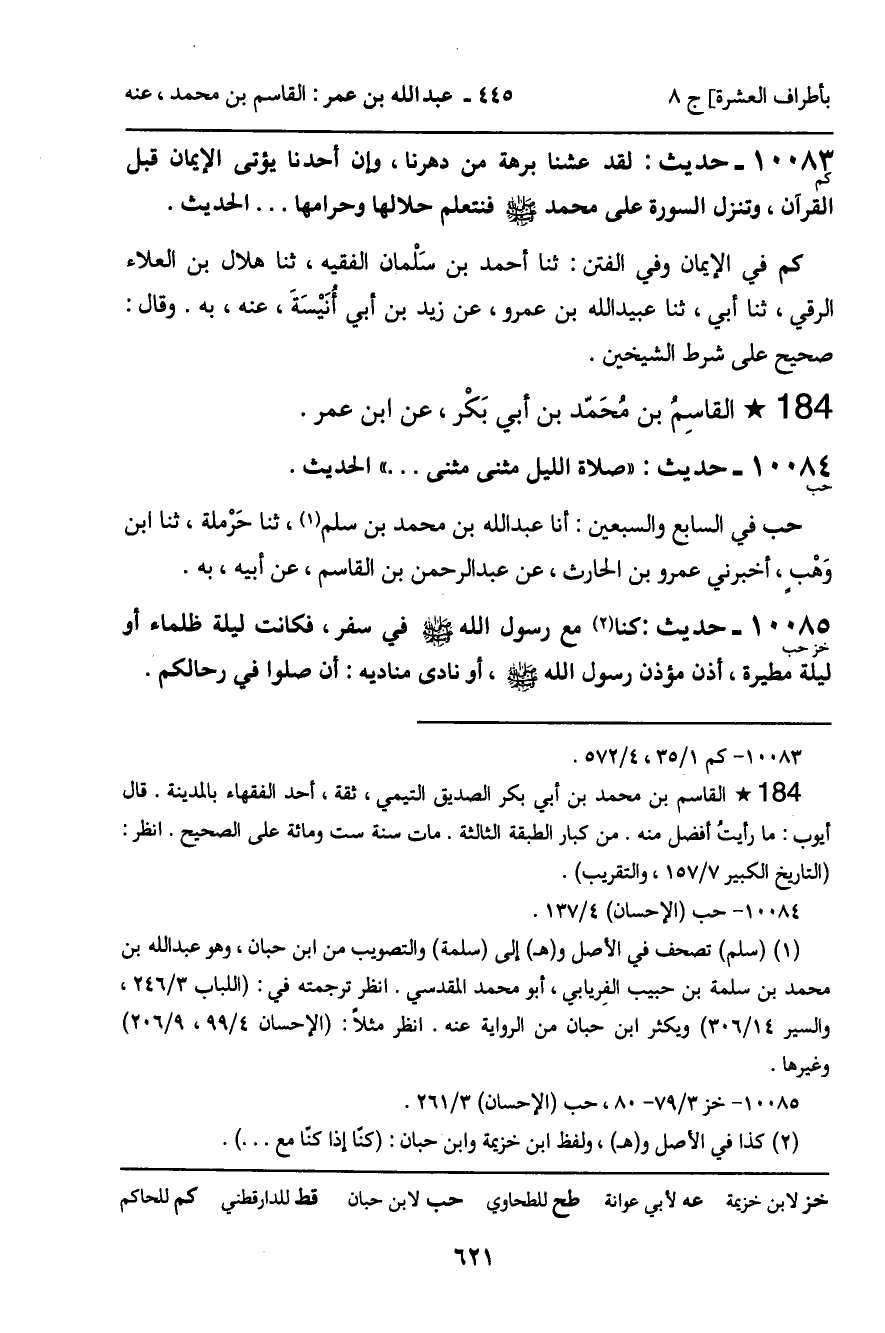 بأطراف العشرة] ج ٨ ٤٤٥ ـ عبدالله بن عمر : القاسم بن محمد ، عنه
١٠٠٨٣ ـ حديث : لقد عشنا برهة من دهرنا ، وإن أحدنا يؤتى الإيمان قبل
كم
القرآن ، وتنزل السورة على محمد ﷺ فنتعلم حلالها وحرامها ... الحديث .
كم في الإيمان وفي الفتن : ثنا أحمد بن سَلْمان الفقيه ، ثنا هلال بن العلاء
الرقي ، ثنا أبي ، ثنا عبيدالله بن عمرو ، عن زيد بن أبي أُنَيْسَةَ ، عنه ، به . وقال :
صحيح على شرط الشيخين .
184 ★ القاسِمُ بن مُحَمّد بن أبي بَكْر ، عن ابن عمر .
١٠٠٨٤ ـ حديث : «صلاة الليل مثنى مثنى ...» الحديث .
حب
حب في السابع والسبعين : أنا عبدالله بن محمد بن سلم(١) ، ثنا حَرْملة ، ثنا ابن
وَهْبٍ ، أخبرني عمرو بن الحارث ، عن عبدالرحمن بن القاسم ، عن أبيه ، به .
١٠٠٨٥ ـ حديث :كنا(٢) مع رسول الله ﷺ في سفر ، فكانت ليلة ظلماء أو
خز حب
ليلة مطيرة ، أذن مؤذن رسول الله ﷺ ، أو نادى مناديه : أن صلوا في رحالكم .
١٠٠٨٣– كم ٣٥/١ ، ٥٧٢/٤ .
184 ★ القاسم بن محمد بن أبي بكر الصديق التيمي ، ثقة ، أحد الفقهاء بالمدينة . قال
أيوب : ما رأيتُ أفضل منه . من كبار الطبقة الثالثة . مات سنة ست ومائة على الصحيح . انظر :
(التاريخ الكبير ١٥٧/٧ ، والتقريب) .
١٠٠٨٤– حب (الإحسان) ١٣٧/٤ .
(١) (سلم) تصحف في الأصل و(هـ) إلى (سلمة) والتصويب من ابن حبان ، وهو عبدالله بن
محمد بن سلمة بن حبيب الفِريابي ، أبو محمد المقدسي . انظر ترجمته في : (اللباب ٢٤٦/٣ ،
والسير ٣٠٦/١٤) ويكثر ابن حبان من الرواية عنه . انظر مثلاً : (الإحسان ٩٩/٤ ، ٢٠٦/٩)
وغيرها .
١٠٠٨٥– خز ٧٩/٣– ٨٠ ، حب (الإحسان) ٢٦١/٣ .
(٢) كذا في الأصل و(هـ) ، ولفظ ابن خزيمة وابن حبان : (كنّا إذا كنّا مع ...) .
خز لابن خزيمة عه لأبي عوانة طح للطحاوي حب لابن حبان قط للدارقطني كم للحاكم
٦٢١